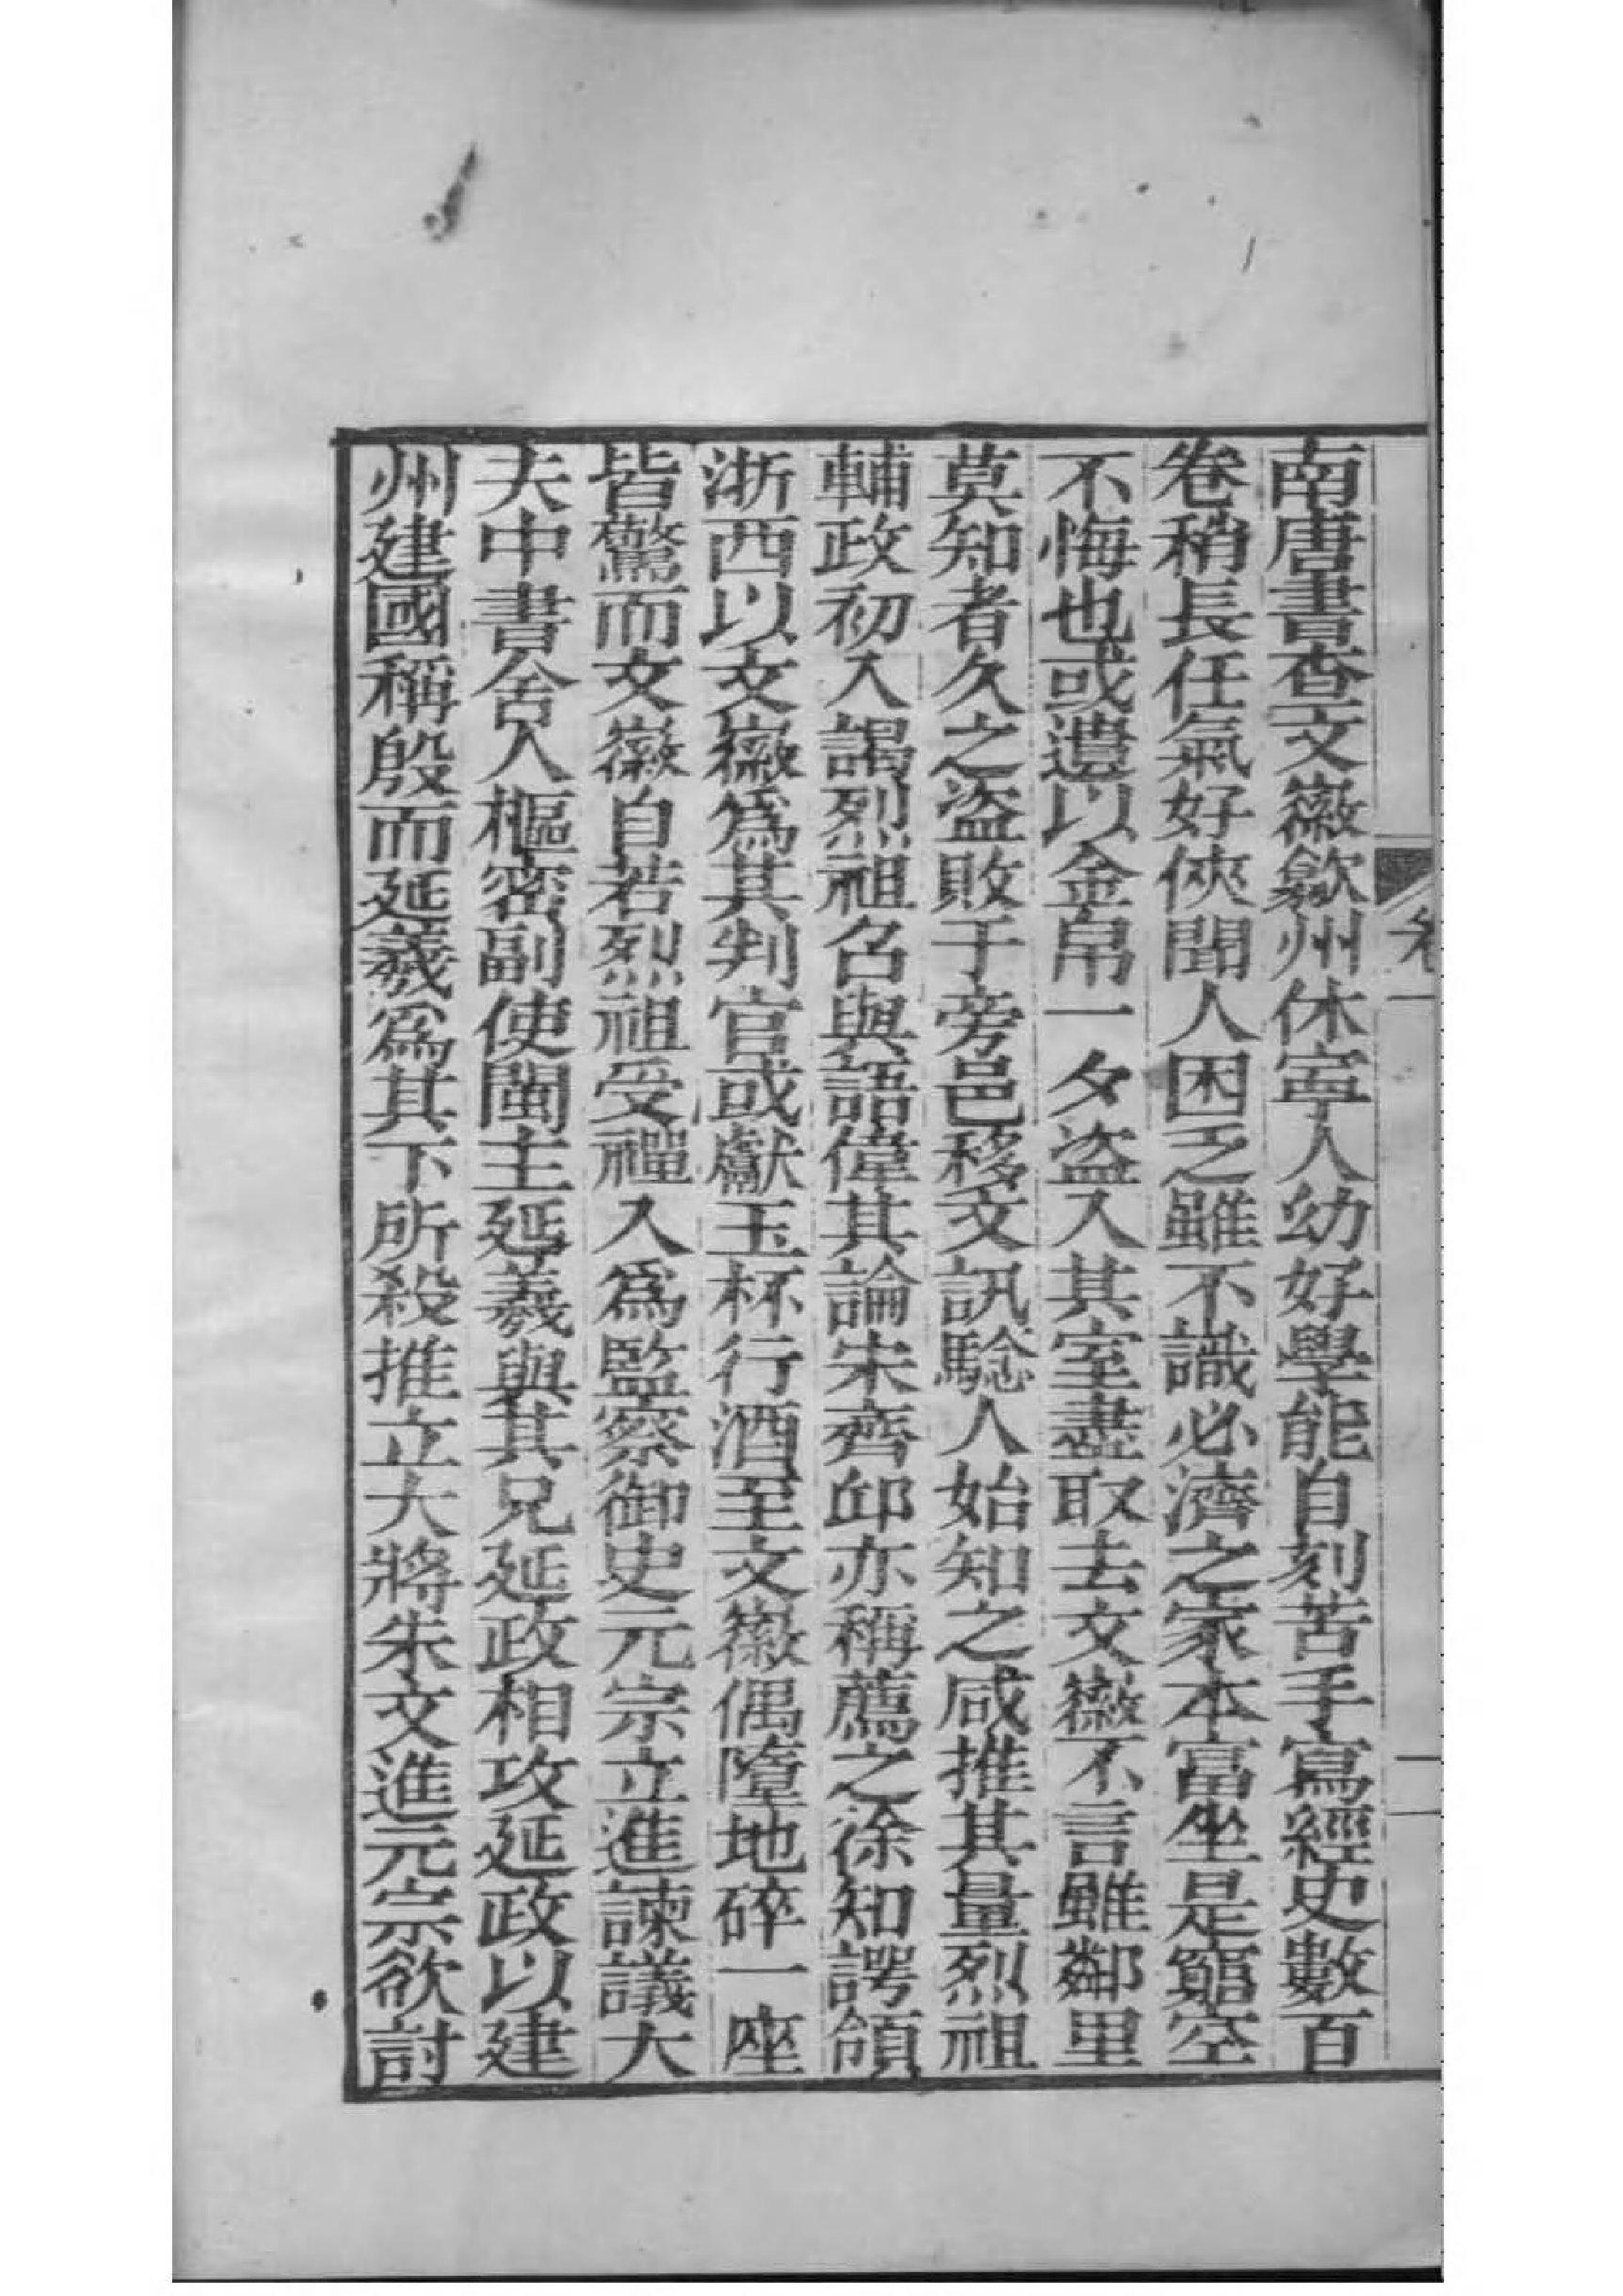 南唐書查文徽歙州休寧人幼好學能自刻苦手寫經史數百
卷稍長任氣好俠聞人困乏雖不識必濟之家本富坐是窮空
不悔也或遺以金帛一夕盜入其室盡取去文徽不言雖鄰里
莫知者久之盜敗于旁邑移文訊驗人始知之咸推其量烈祖
輔政初入謁烈祖召與語偉其論宋齊邱亦稱薦之徐知諤領
浙西以文徽爲其判官或獻玉杯行酒至文徽偶墮地碎一座
皆驚而文徽自若烈祖受禪入爲監察御史元宗立進諫議大
夫中書舍人樞密副使閩主延羲與其兄延政相攻延政以建
州建國稱殷而延羲爲其下所殺推立大將朱文進元宗欲討
卷一